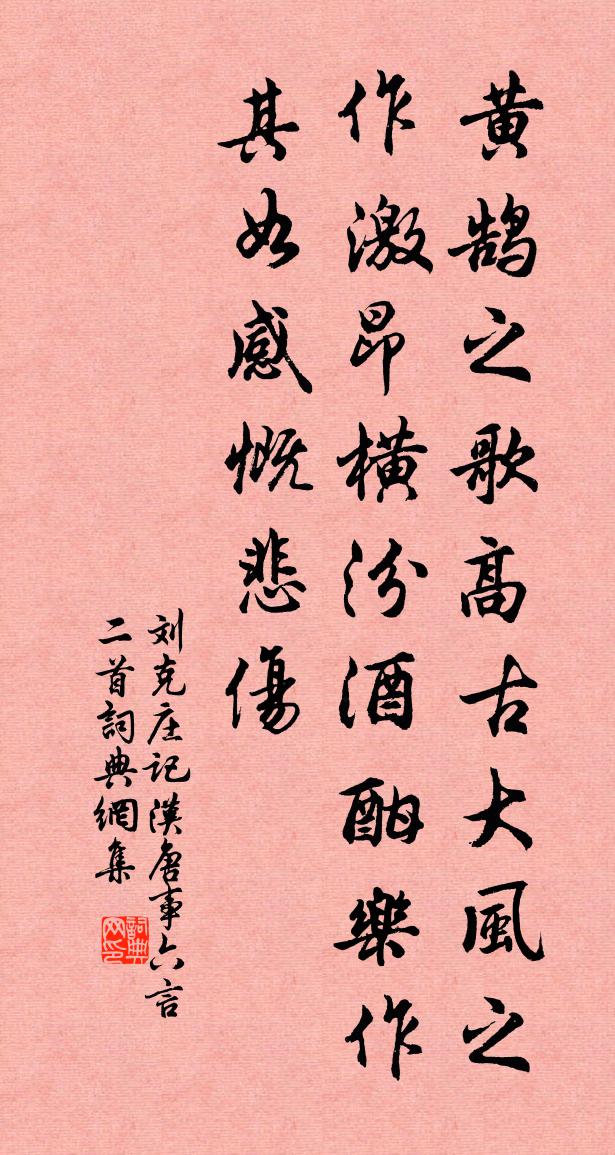 黄鹄之歌高古大風之
作激昂橫汾酒酣樂作
其如感慨悲傷
刘克庄記漢唐事六言
二首詞典網集
詞典网印